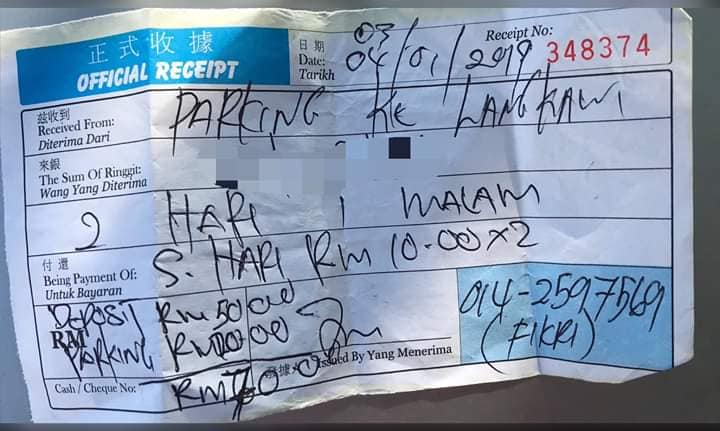 正式收據
OFFICIAL RECEIPT
日期
Date:
Tarikh
03
04/01/2019
Receipt No:
348374
兹收到
Received From:
Diterima Dari
PARKING KE LANGKAWI
來銀
The Sum Of Ringgit:
Wang Yang Diterima
2 HARI 1 MALAM
付還
Being Payment Of:
Untuk Bayaran
S. HARI RM 10.00 x 2
DEPOSIT RM 50.00
RM
PARKING RM20.00
014-2597569
(FIKRI)
發據人 Issued By Yang Menerima
Cash / Cheque No:
RM70.00